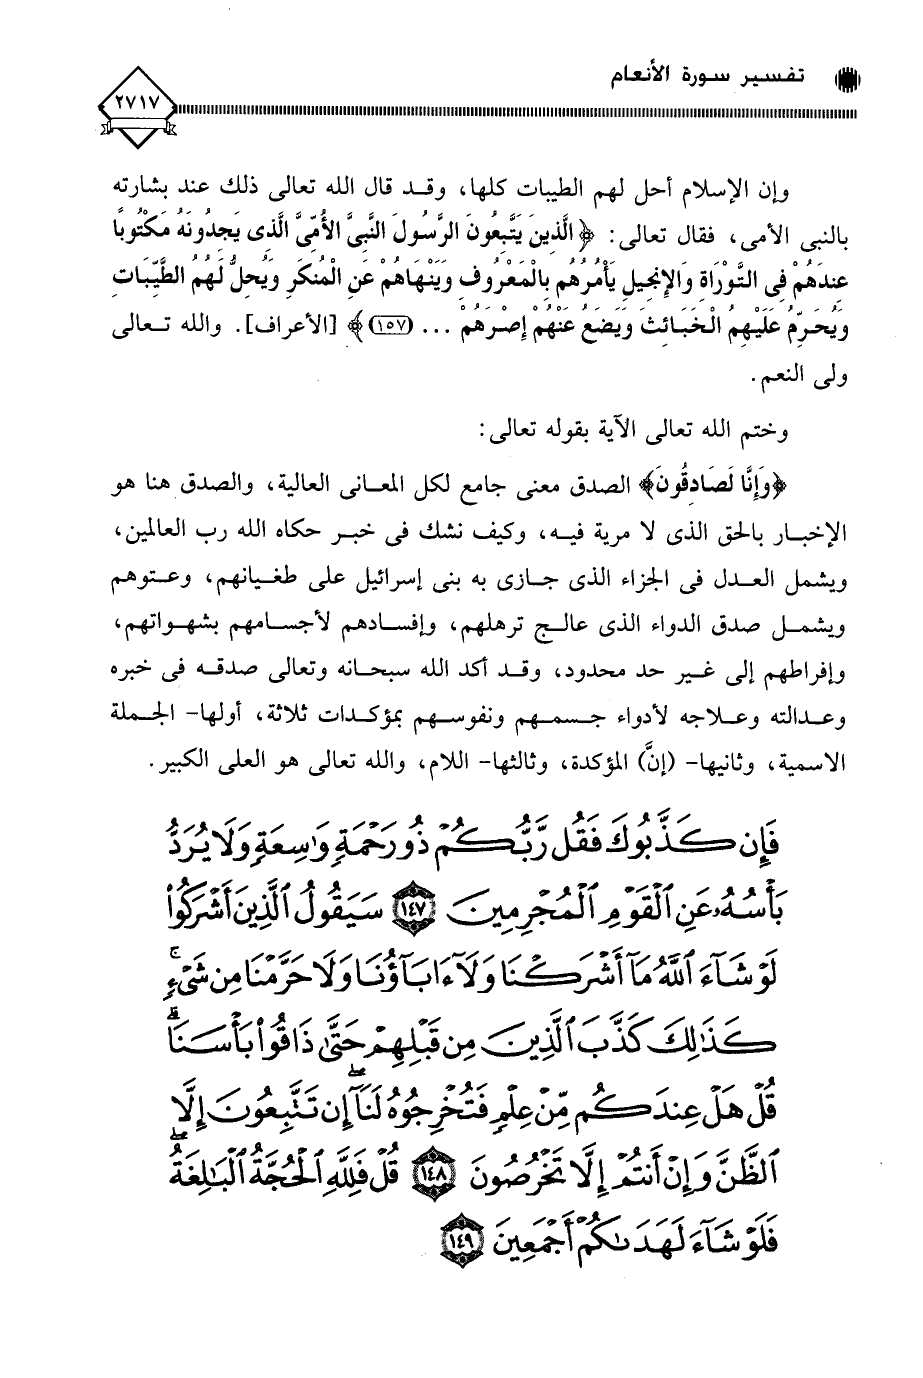 تفسير سورة الأنعام
٢٧١٧
وإن الإسلام أحل لهم الطيبات كلها، وقد قال الله تعالى ذلك عند بشارته
بالنبى الأمى، فقال تعالى: ﴿الَّذِينَ يَتَّبِعُونَ الرَّسُولَ النَّبِيَّ الأُمِّيَّ الَّذِى يَجِدُونَهُ مَكْتُوبًا
عِندَهُمْ فِى التَّوْرَاةِ وَالإِنجِيلِ يَأْمُرُهُم بِالْمَعْرُوفِ وَيَنْهَاهُمْ عَنِ الْمُنكَرِ وَيُحِلُّ لَهُمُ الطَّيِّبَاتِ
وَيُحَرِّمُ عَلَيْهِمُ الْخَبَائِثَ وَيَضَعُ عَنْهُمْ إِصْرَهُمْ ... (١٥٧)﴾ [الأعراف]. والله تعالى
ولى النعم.
وختم الله تعالى الآية بقوله تعالى:
﴿وَإِنَّا لَصَادِقُونَ﴾ الصدق معنى جامع لكل المعانى العالية، والصدق هنا هو
الإخبار بالحق الذى لا مرية فيه، وكيف نشك فى خبر حكاه الله رب العالمين،
ويشمل العدل فى الجزاء الذى جازى به بنى إسرائيل على طغيانهم، وعتوهم
ويشمل صدق الدواء الذى عالج ترهلهم، وإفسادهم لأجسامهم بشهواتهم،
وإفراطهم إلى غير حد محدود، وقد أكد الله سبحانه وتعالى صدقه فى خبره
وعدالته وعلاجه لأدواء جسمهم ونفوسهم بمؤكدات ثلاثة، أولها- الجملة
الاسمية، وثانيها- (إنَّ) المؤكدة، وثالثها- اللام، والله تعالى هو العلى الكبير.
فَإِن كَذَّبُوكَ فَقُل رَّبُّكُمْ ذُو رَحْمَةٍ وَٰسِعَةٍ وَلَا يُرَدُّ
بَأْسُهُۥ عَنِ ٱلْقَوْمِ ٱلْمُجْرِمِينَ ١٤٧ سَيَقُولُ ٱلَّذِينَ أَشْرَكُوا۟
لَوْ شَآءَ ٱللَّهُ مَآ أَشْرَكْنَا وَلَآ ءَابَآؤُنَا وَلَا حَرَّمْنَا مِن شَىْءٍ ۚ
كَذَٰلِكَ كَذَّبَ ٱلَّذِينَ مِن قَبْلِهِمْ حَتَّىٰ ذَاقُوا۟ بَأْسَنَا ۗ
قُلْ هَلْ عِندَكُم مِّنْ عِلْمٍ فَتُخْرِجُوهُ لَنَآ ۖ إِن تَتَّبِعُونَ إِلَّا
ٱلظَّنَّ وَإِنْ أَنتُمْ إِلَّا تَخْرُصُونَ ١٤٨ قُلْ فَلِلَّهِ ٱلْحُجَّةُ ٱلْبَٰلِغَةُ ۖ
فَلَوْ شَآءَ لَهَدَىٰكُمْ أَجْمَعِينَ ١٤٩